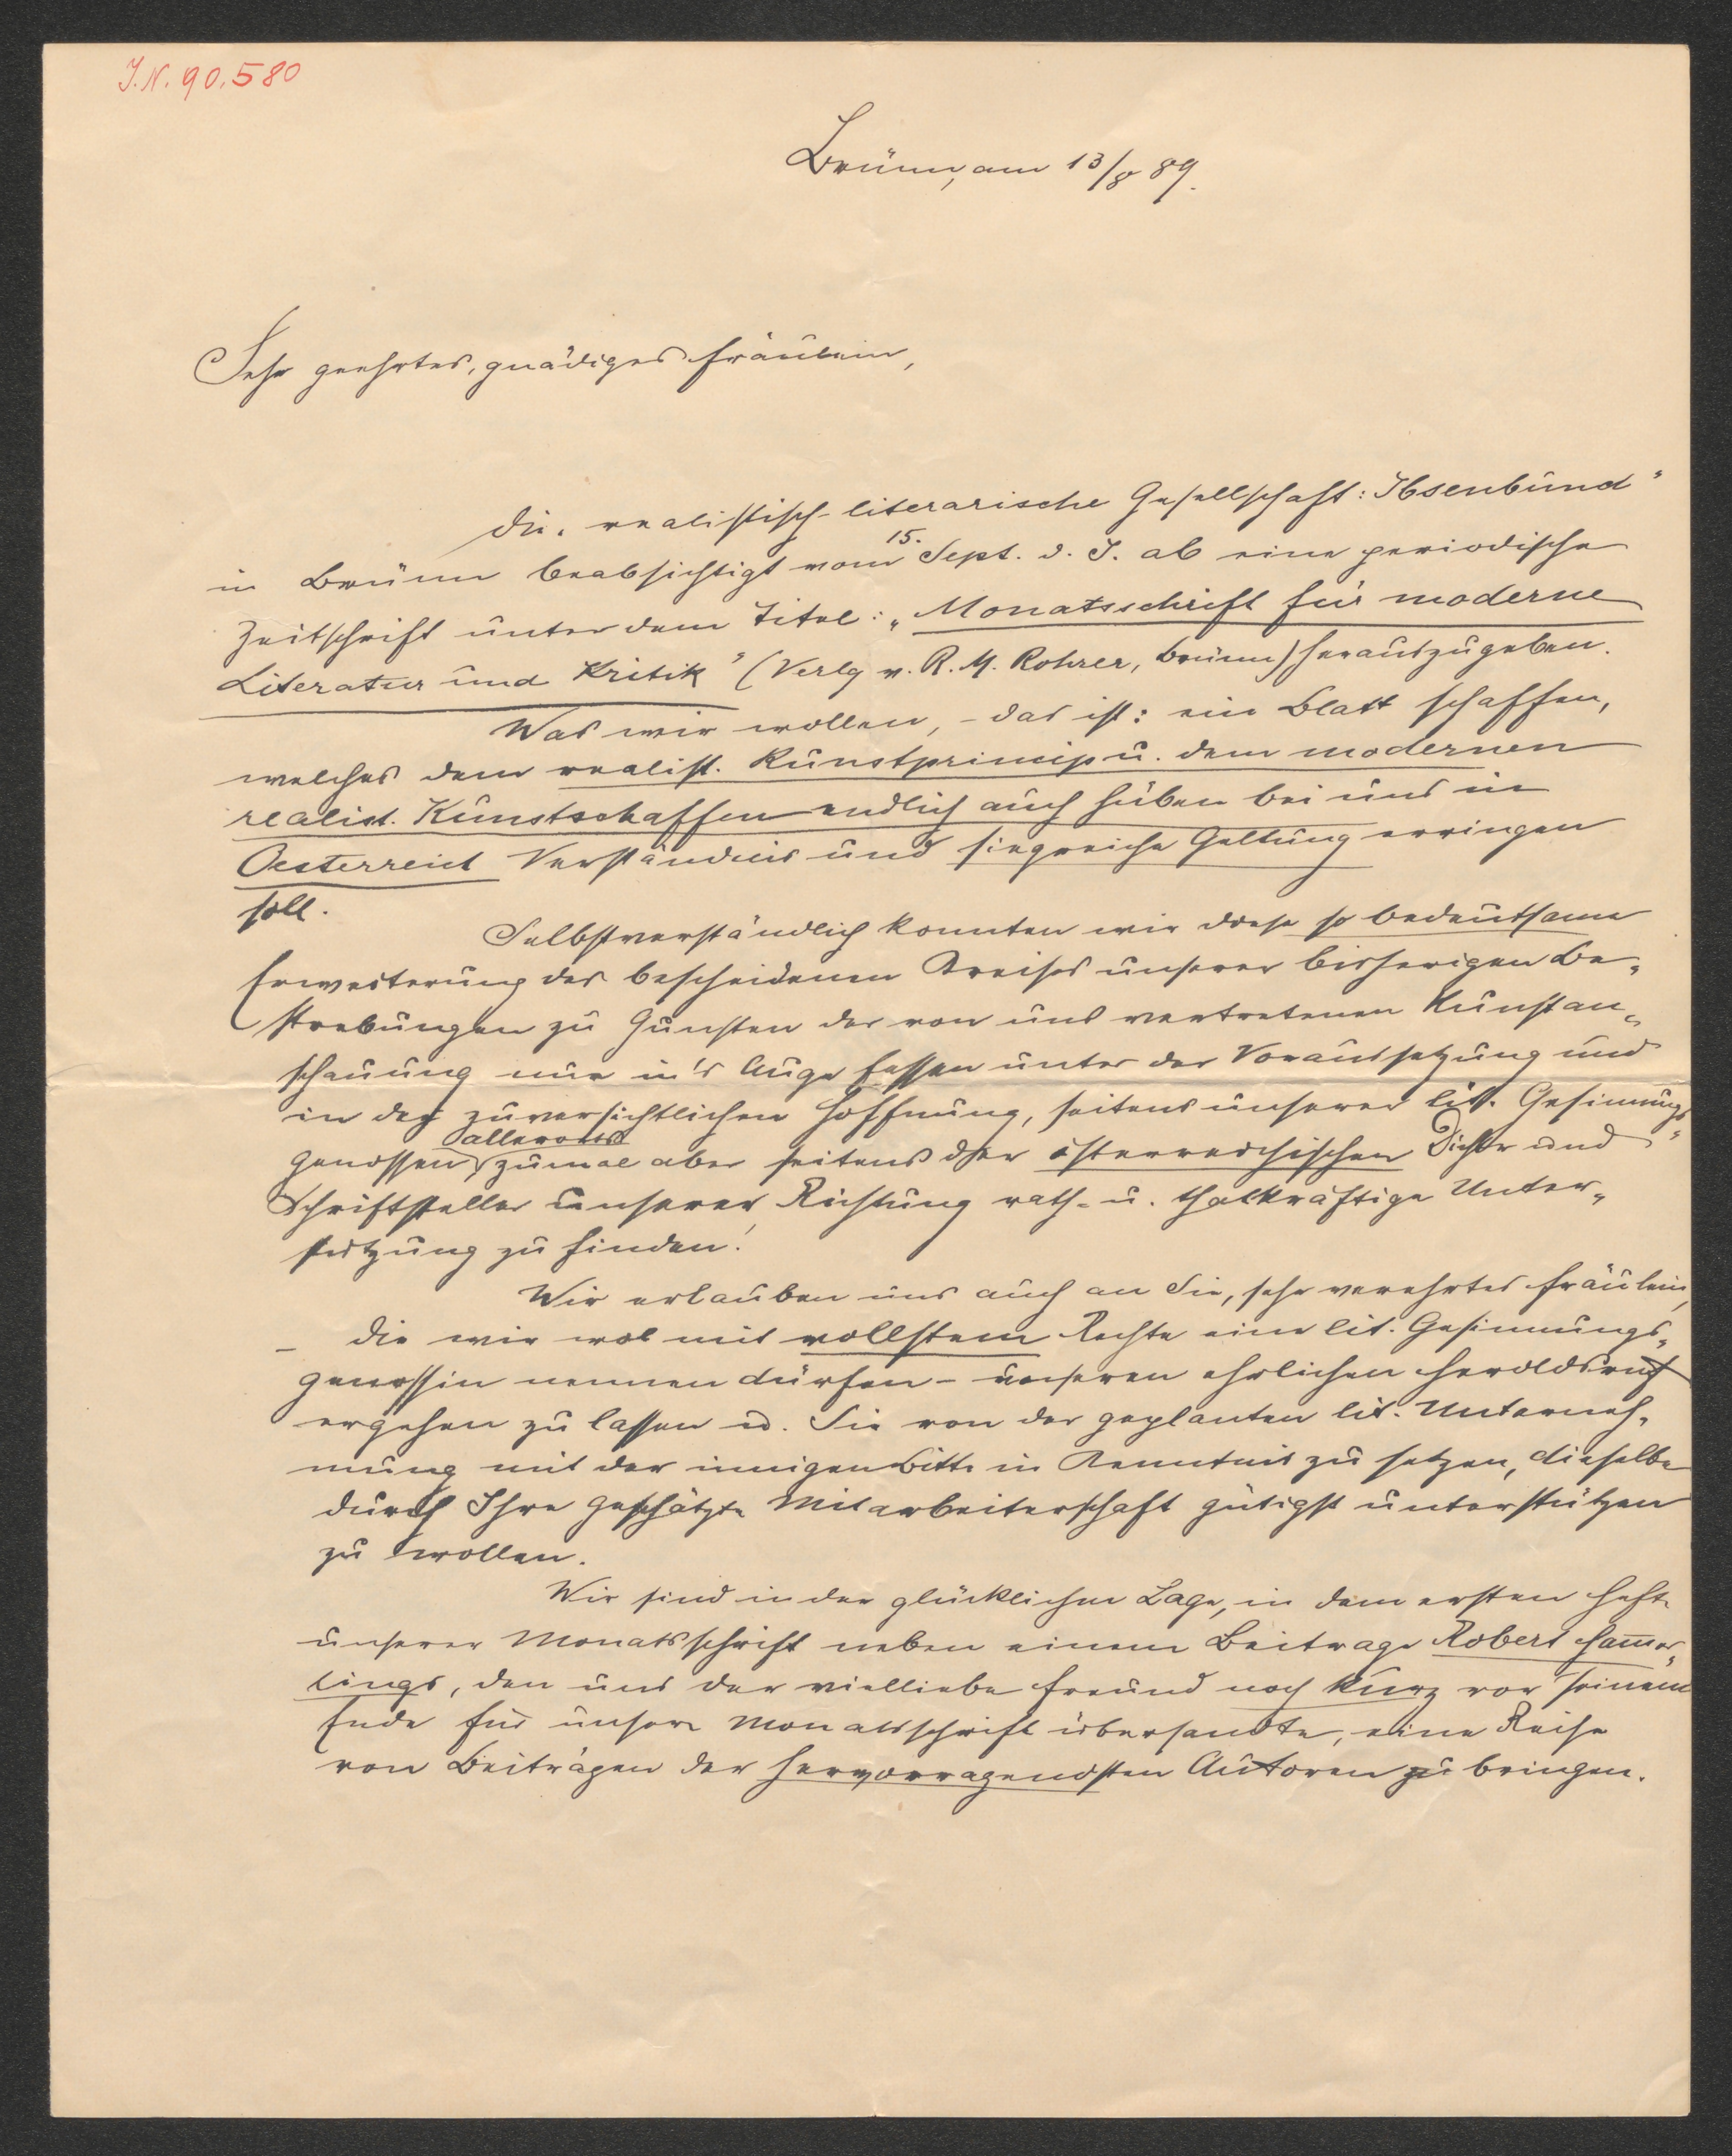 J.N. 90.580
Brünn, am 13/8 89.
Sehr geehrtes, gnädiges Fräulein,
Die „realistisch-literarische Gesellschaft: Ibsenbund"
in Brünn beabsichtigt vom 15. Sept. d. J. ab eine periodische
Zeitschrift unter dem Titel: „Monatsschrift für moderne
Literatur und Kritik" (Verlg v. R. M. Rohrer, Brünn) herauszugeben.
Was wir wollen, – das ist: ein Blatt schaffen,
welches dem realist. Kunstprincip u. dem modernen
realist. Kunstschaffen endlich auch hüben bei uns in
Oesterreich Verständnis und siegreiche Geltung erringen
soll.
Selbstverständlich konnten wir diese so bedeutsame
Erweiterung des bescheidenen Kreises unserer bisherigen Be-
strebungen zu Gunsten der von uns vertretenen Kunstan-
schauung nur in's Auge fassen unter der Voraussetzung und
in der zuversichtlichen Hoffnung, seitens unserer lit. Gesinnungs-
genossen allerorts zumal aber seitens der österreichischen Dichter und
Schriftsteller unserer Richtung rath- u. thatkräftige Unter-
stützung zu finden!
Wir erlauben uns auch an Sie, sehr verehrtes Fräulein,
– die wir wol mit vollstem Rechte eine lit. Gesinnungs-
genossin nennen dürfen – unseren ehrlichen Heroldsruf
ergehen zu lassen u. Sie von der geplanten lit. Unterneh-
mung mit der innigen Bitte in Kenntnis zu setzen, dieselbe
durch Ihre geschätzte Mitarbeiterschaft gütigst unterstützen
zu wollen.
Wir sind in der glücklichen Lage, in dem ersten Hefte
unserer Monatsschrift neben einem Beitrage Robert Ham̅er-
lings, den uns der vielliebe Freund noch kurz vor seinem
Ende für unsere Monatsschrift übersandte, eine Reihe
von Beiträgen der hervorragendsten Autoren zu bringen.